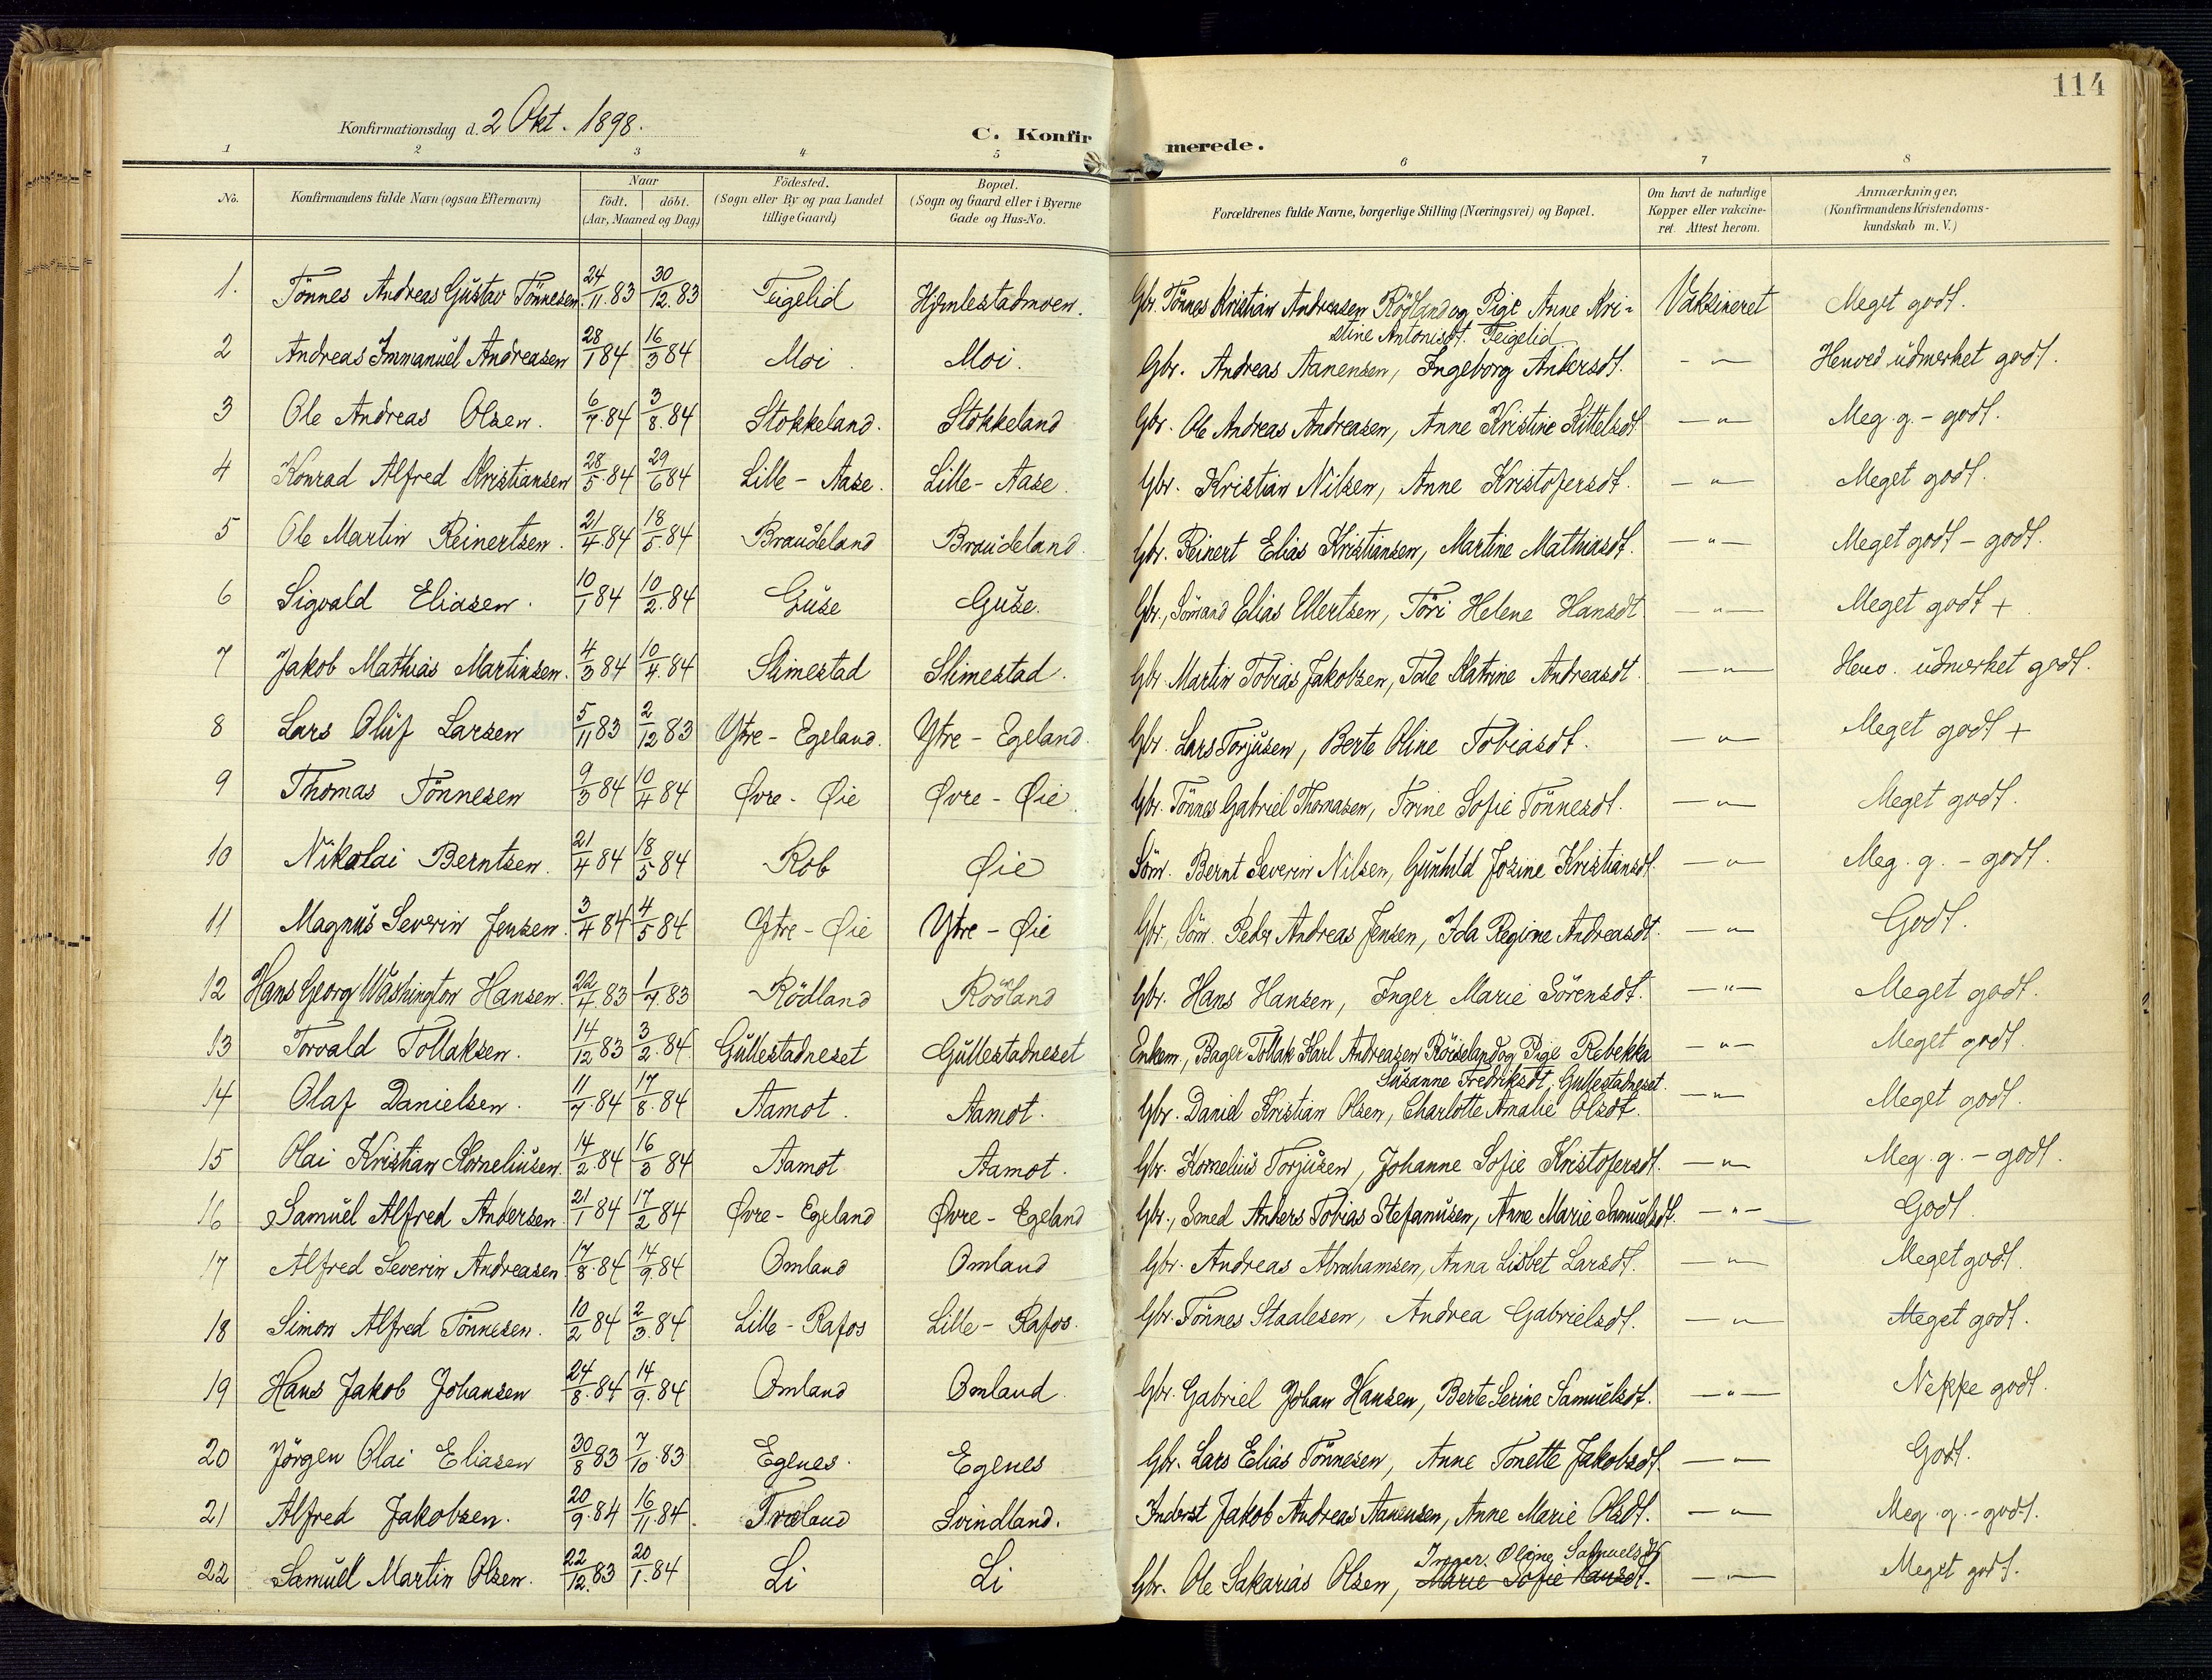 114
Konfirmationsdag d. 2 Okt. 1898.
C. Konfirmerede.
1 2 3 4 5 6 7 8
No. Konfirmandens fulde Navn (ogsaa Efternavn) Naar födt. döbt. (Aar, Maaned og Dag) Födested. (Sogn eller By og paa Landet tillige Gaard) Bopæl. (Sogn og Gaard eller i Byerne Gade og Hus-No. Forældrenes fulde Navne, borgerlige Stilling (Næringsvei) og Bopæl. Om havt de naturlige Kopper eller vakcineret. Attest herom. Anmærkninger, (Konfirmandens Kristendomskundskab m. V.)
1. Tönnes Andreas Gustav Tönnesen. 24/11.83 30/12.83 Feigelid Hjemlestadmoen. Gbr. Tönnes Kristian Andreasen Rödland og Pige Anne Kri-
stine Antonisdt. Feigelid Vaksineret Meget godt.
2 Andreas Immanuel Andreasen 28/1 84 16/3 84 Moi. Moi. Gbr. Andreas Aanensen, Ingeborg Andersdt. — " — Henved udmerket godt.
3 Ole Andreas Olsen. 6/7.84 3/8.84 Stokkeland. Stokkeland Gbr. Ole Andreas Andreasen, Anne Kristine Kittelsdt — " — Meg. g. - godt.
4 Konrad Alfred Kristiansen 28/5.84 29/6 84 Lille - Aase. Lille - Aase. Gbr. Kristian Nilsen, Anne Kristofersdt. — " — Meget godt.
5 Ole Martin Reinertsen. 21/4 84 18/5.84 Braudeland Braudeland. Gbr. Reinert Elias Kristiansen, Martine Mathiasdt. — " — Meget godt - godt.
6 Sigvald Eliasen. 10/1 84 10/2.84 Guse Guse. Gbr., Sömand Elias Ellertsen, Töri Helene Hansdt — " — Meget godt +
7 Jakob Mathias Martinsen. 4/3 84 10/4.84 Slimestad Slimestad. Gbr. Martin Tobias Jakobsen, Tale Katrine Andreasdt. — " — Henv. udmerket godt.
8 Lars Oluf Larsen 5/11 83 2/12 83 Ytre - Egeland. Ytre - Egeland. Gbr. Lars Torjusen, Berte Oline Tobiasdt. — " — Meget godt +
9 Thomas Tönnesen 9/3 84 10/4 84 Øvre - Øie Øvre - Øie. Gbr. Tönnes Gabriel Thomasen, Trine Sofie Tönnesdt. — " — Meget godt.
10 Nikolai Berntsen. 21/4 84 18/5 84 Rob Øie Söm. Bernt Severin Nilsen, Gunhild Josine Kristiansdt. — " — Meg. g. - godt.
11 Magnus Severin Jensen. 3/4 84 4/5 84 Ytre - Øie Ytre - Øie Gbr., Söm. Peder Andreas Jensen, Ida Regine Andreasdt. — " — Godt.
12 Hans Georg Washington Hansen. 22/4 83 1/7.83 Rödland Rödland Gbr. Hans Hansen, Inger Marie Sörensdt. — " — Meget godt.
13 Torvald Tollaksen. 14/12 83 3/2.84. Gullestadneset Gullestadneset Enkem., Bager Tollak Karl Andreasen Röiseland og Pige Rebekka
Susanne Fredriksdt, Gullestadneset. — " — Meget godt.
14 Olaf Danielsen. 11/7.84 17/8.84 Aamot. Aamot. Gbr. Daniel Kristian Olsen, Charlotte Amalie Olsdt. — " — Meget godt.
15 Olai Kristian Korneliusen. 14/2.84 16/3 84 Aamot Aamot. Gbr. Kornelius Torjusen, Johanne Sofie Kristofersdt. — " — Meg. g. - godt.
16 Samuel Alfred Andersen 21/1 84 17/2 84 Øvre - Egeland Øvre - Egeland Gbr., Smed Anders Tobias Stefanusen, Anne Marie Samuelsdt. — " — Godt
17 Alfred Severin Andreasen 17/8.84 14/9.84 Omland Omland Gbr. Andreas Abrahamsen, Anna Lisbet Larsdt. — " — Meget godt.
18 Simon Alfred Tönnesen. 10/2 84 2/3.84 Lille - Rafos Lille - Rafos. Gbr. Tönnes Staalesen, Andrea Gabrielsdt. — " — Meget godt.
19 Hans Jakob Johansen 24/8.84 14/9.84 Omland Omland. Gbr. Gabriel Johan Hansen, Berte Serine Samuelsdt. — " — Neppe godt.
20 Jörgen Olai Eliasen 30/8 83 7/10.83 Egenes. Egenes Gbr. Lars Elias Tönnesen, Anne Tonette Jakobsdt. — " — Godt.
21 Alfred Jakobsen. 20/9.84 16/11.84. Træland Svindland. Inderst Jakob Andreas Aanensen, Anne Marie Olsdt. — " — Meg. g. - godt.
22 Samuel Martin Olsen. 22/12.83 20/1.84 Li Li Gbr. Ole Sakarias Olsen, Marie Sofie Hansdt. Inger Oline Samuelsdt — " — Meget godt.